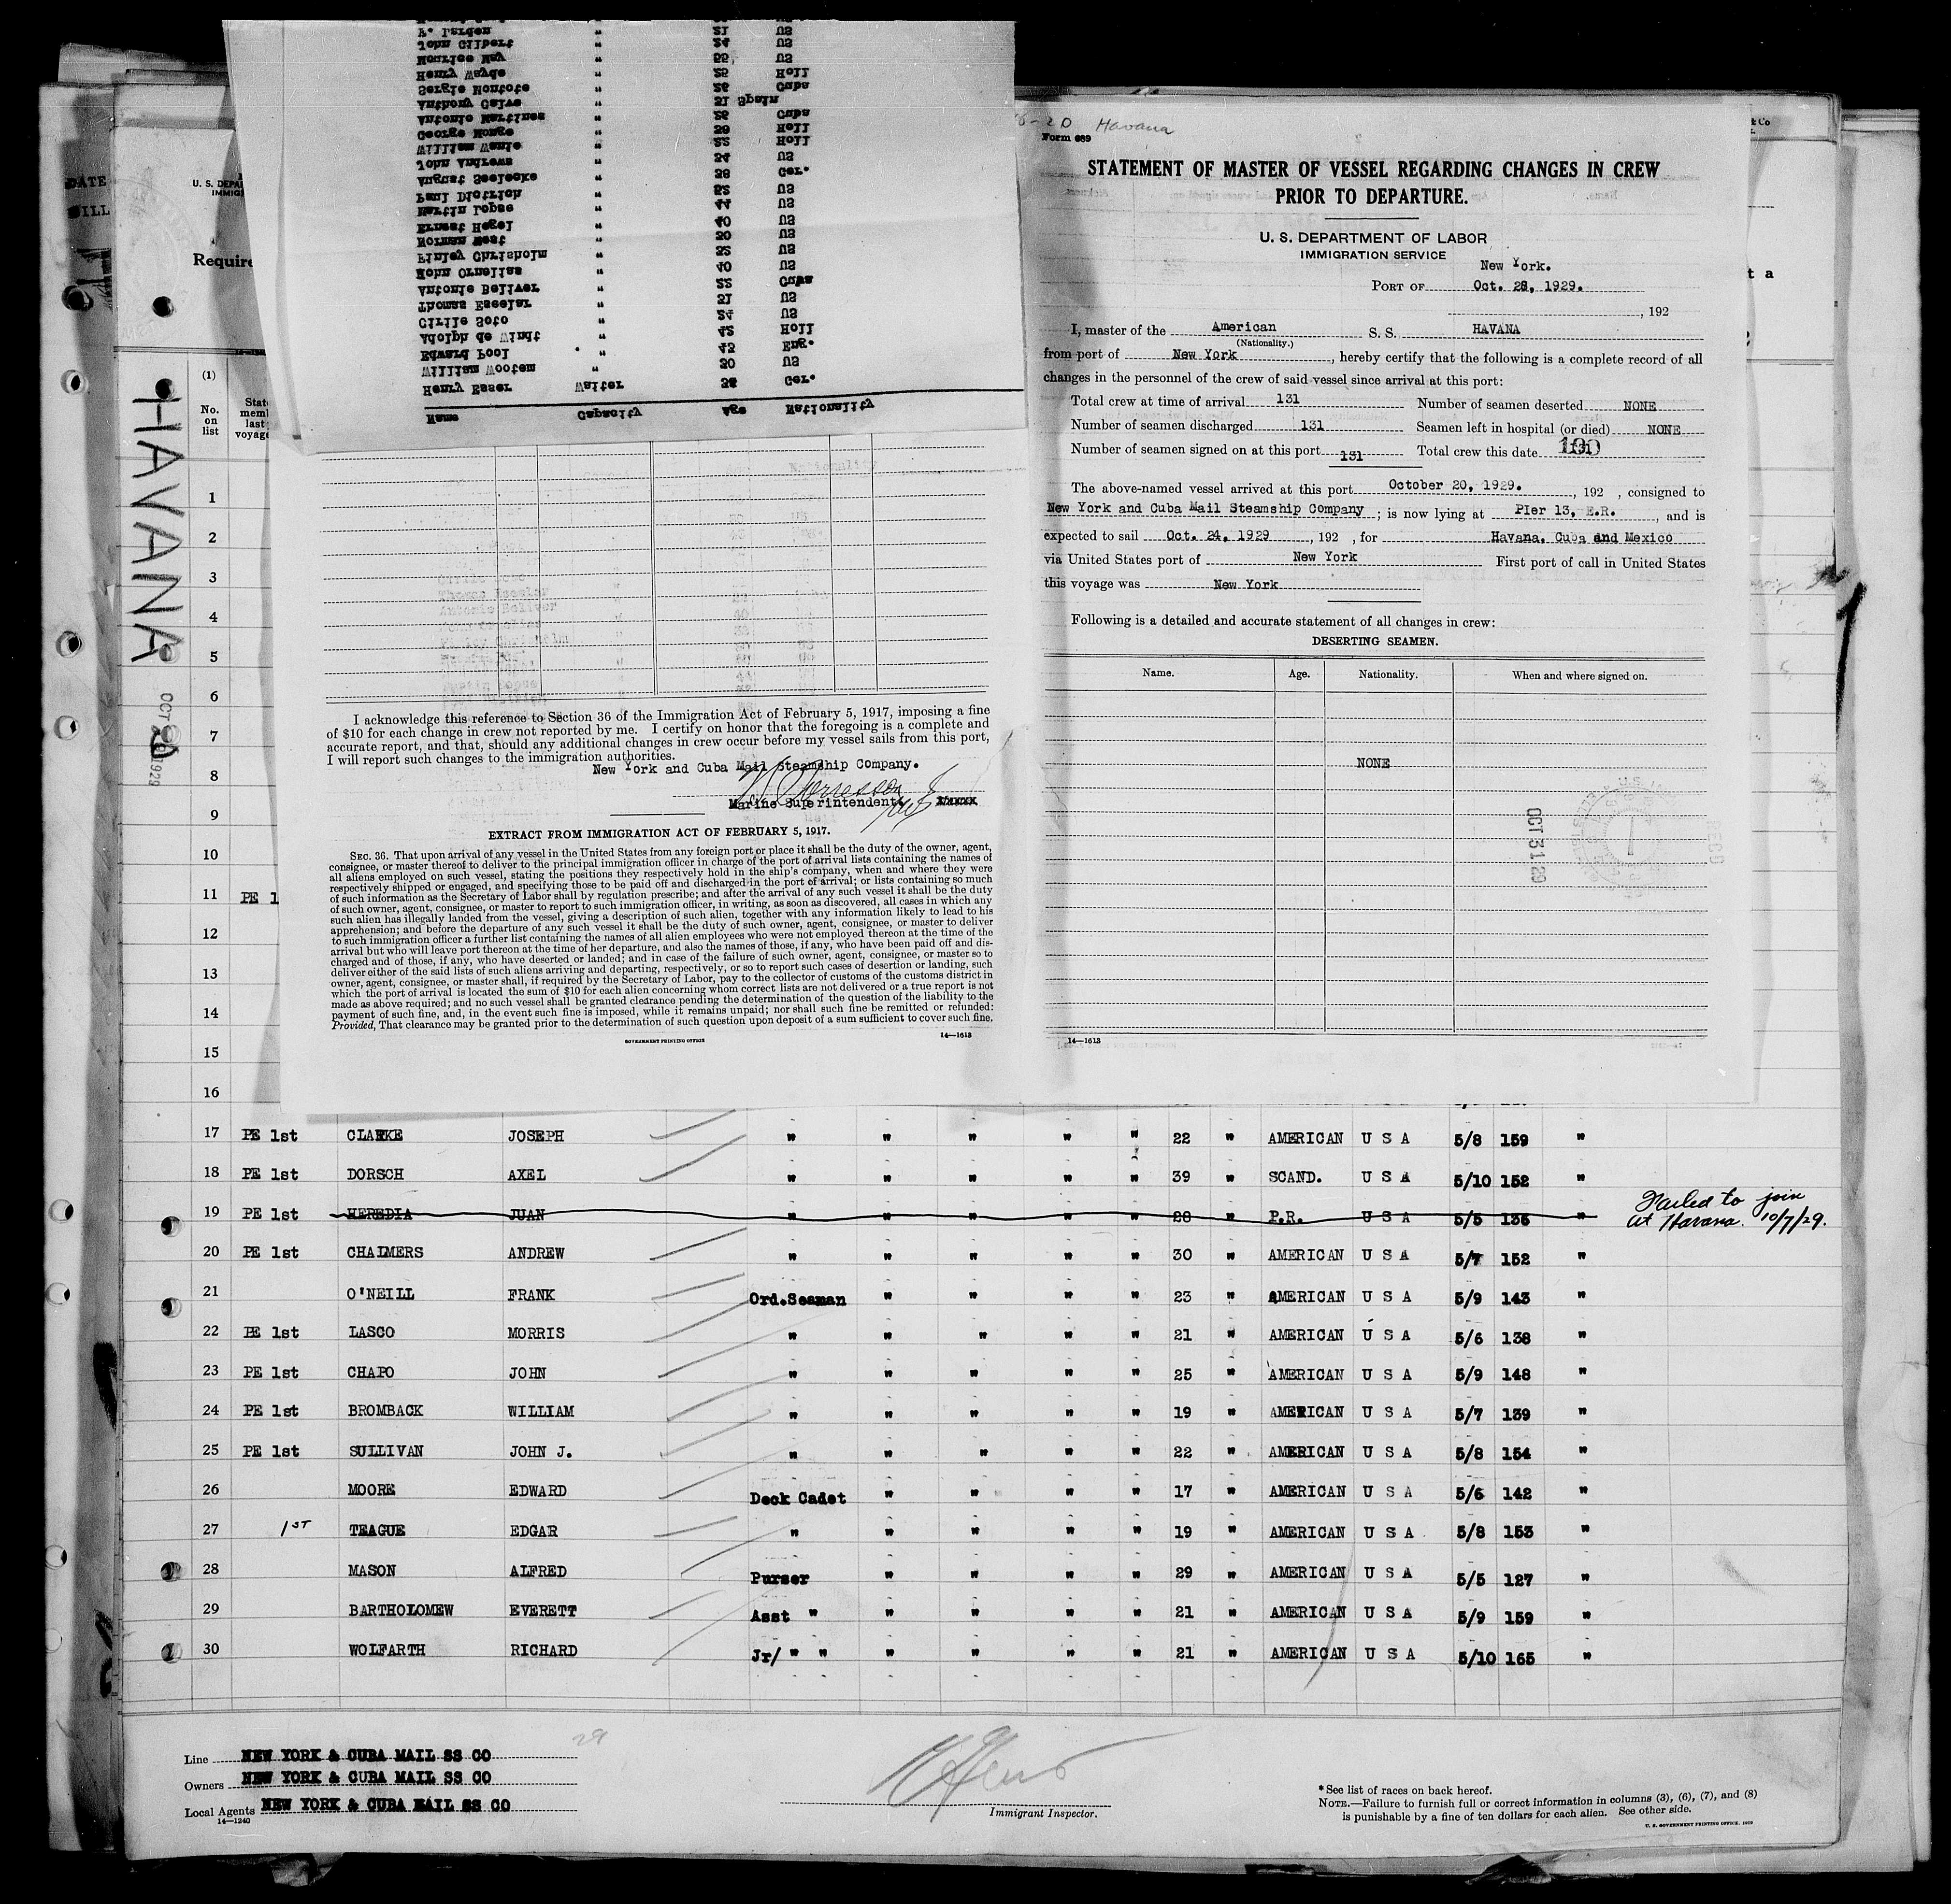 Name Capacity Age Nationality
Henry Esser Waiter 38 Ger.
William Wootem " 30 US
Edward Pool " 43 Eng.
Adolph de Windt " 42 Holl
Cirilo Soto " 24 US
Thomas Esceler " 31 US
Antonio Beliver " 22 Cuba
John Ornellas " 40 US
Finley Chrisholm " 32 US
Norman West " 30 US
Ernest Hegel " 40 US
Martin Lopse " 44 US
Paul Dietrich " 32 US
August Seelecke " 39 Ger.
John Andrews " 34 US
William Wante " 22 Holl
George Monge " 39 Holl
Antonio Martines " 28 Cuba
Anthony Calve " 31 Spain
Sergio Montote " 26 Cuba
Henry Wayde " 25 Holl
Mourice May " 55, US
John Gilbert " 24 US
F. Purden " 21 US
DATE
U. S. DEPA
IMMIG
Require
(1)
No.
on
list
State
memb
last
voyage
HAVANA
OCT 20 1929
1
2
3
4
5
6
7
8
9
10
11 PE 1
12
13
14
15
16
I acknowledge this reference to Section 36 of the Immigration Act of February 5, 1917, imposing a fine
of $10 for each change in crew not reported by me. I certify on honor that the foregoing is a complete and
accurate report, and that, should any additional changes in crew occur before my vessel sails from this port,
I will report such changes to the immigration authorities.
New York and Cuba Mail Steamship Company.
Marine Superintendent
EXTRACT FROM IMMIGRATION ACT OF FEBRUARY 5, 1917.
SEC. 36. That upon arrival of any vessel in the United States from any foreign port or place it shall be the duty of the owner, agent,
consignee, or master thereof to deliver to the principal immigration officer in charge of the port of arrival lists containing the names of
all aliens employed on such vessel, stating the positions they respectively hold in the ship's company, when and where they were
respectively shipped or engaged, and specifying those to be paid off and discharged in the port of arrival; or lists containing so much
of such information as the Secretary of Labor shall by regulation prescribe; and after the arrival of any such vessel it shall be the duty
of such owner, agent, consignee, or master to report to such immigration officer, in writing, as soon as discovered, all cases in which any
such alien has illegally landed from the vessel, giving a description of such alien, together with any information likely to lead to his
apprehension; and before the departure of any such vessel it shall be the duty of such owner, agent, consignee, or master to deliver
to such immigration officer a further list containing the names of all alien employees who were not employed thereon at the time of the
arrival but who will leave port thereon at the time of her departure, and also the names of those, if any, who have been paid off and dis-
charged and of those, if any, who have deserted or landed; and in case of the failure of such owner, agent, consignee, or master so to
deliver either of the said lists of such aliens arriving and departing, respectively, or so to report such cases of desertion or landing, such
owner, agent, consignee, or master shall, if required by the Secretary of Labor, pay to the collector of customs of the customs district in
which the port of arrival is located the sum of $10 for each alien concerning whom correct lists are not delivered or a true report is not
made as above required; and no such vessel shall be granted clearance pending the determination of the question of the liability to the
payment of such fine, and, in the event such fine is imposed, while it remains unpaid; nor shall such fine be remitted or refunded:
Provided, That clearance may be granted prior to the determination of such question upon deposit of a sum sufficient to cover such fine.
GOVERNMENT PRINTING OFFICE 14—1613
Havana
Form 689
STATEMENT OF MASTER OF VESSEL REGARDING CHANGES IN CREW
PRIOR TO DEPARTURE.
U. S. DEPARTMENT OF LABOR
IMMIGRATION SERVICE
New York.
PORT OF Oct. 28, 1929.
, 192
I, master of the American S. S. HAVANA
(Nationality.)
from port of New York, hereby certify that the following is a complete record of all
changes in the personnel of the crew of said vessel since arrival at this port:
Total crew at time of arrival 131 Number of seamen deserted NONE
Number of seamen discharged 131 Seamen left in hospital (or died) NONE
Number of seamen signed on at this port 131 Total crew this date
The above-named vessel arrived at this port October 20, 1929. , 192 , consigned to
New York and Cuba Mail Steamship Company ; is now lying at PIer 13, E.R. , and is
expected to sail Oct. 24, 1929 , 192 , for Havana, Cuba and Mexico
via United States port of New York First port of call in United States
this voyage was New York
Following is a detailed and accurate statement of all changes in crew:
DESERTING SEAMEN.
Name. Age. Nationality. When and where signed on.
NONE
OCT 31 29
14—1613
17 PE 1st CLARKE JOSEPH " " " " " 22 " AMERICAN U S A 5/8 159 "
18 PE 1st DORSCH AXEL " " " " " 39 " SCAND. U S A 5/10 152 "
19 PE 1st HEREDIA JUAN " " " " " 28 " P.R. U S A 5/5 136 " Failed to join
at Havana. 10/7/29.
20 PE 1st CHALMERS ANDREW " " " " " 30 " AMERICAN U S A 5/7 152 "
21 O'NEILL FRANK Ord.Seaman " " " " 23 " AMERICAN U S A 5/9 143 "
22 PE 1st LASCO MORRIS " " " " " 21 " AMERICAN U S A 5/6 138 "
23 PE 1st CHAPO JOHN " " " " " 25 " AMERICAN U S A 5/9 148 "
24 PE 1st BROMBACK WILLIAM " " " " " 19 " AMERICAN U S A 5/7 139 "
25 PE 1st SULLIVAN JOHN J. " " " " " 22 " AMERICAN U S A 5/8 154 "
26 MOORE EDWARD Deck Cadet " " " " 17 " AMERICAN U S A 5/6 142 "
27 1ST TEAGUE EDGAR " " " " " 19 " AMERICAN U S A 5/8 153 "
28 MASON ALFRED Purser " " " " 29 " AMERICAN U S A 5/5 127 "
29 BARTHOLOMEW EVERETT Asst " " " " " 21 " AMERICAN U S A 5/9 159 "
30 WOLFARTH RICHARD Jr/ " " " " " " 21 " AMERICAN U S A 5/10 165 "
29
Line NEW YORK & CUBA MAIL SS CO
Owners NEW YORK & CUBA MAIL SS CO
Local Agents NEW YORK & CUBA MAIL SS CO
14—1240
Immigrant Inspector.
*See list of races on back hereof.
NOTE.—Failure to furnish full or correct information in columns (3), (6), (7), and (8)
is punishable by a fine of ten dollars for each alien. See other side.
U. S. GOVERNMENT PRINTING OFFICE, 1929